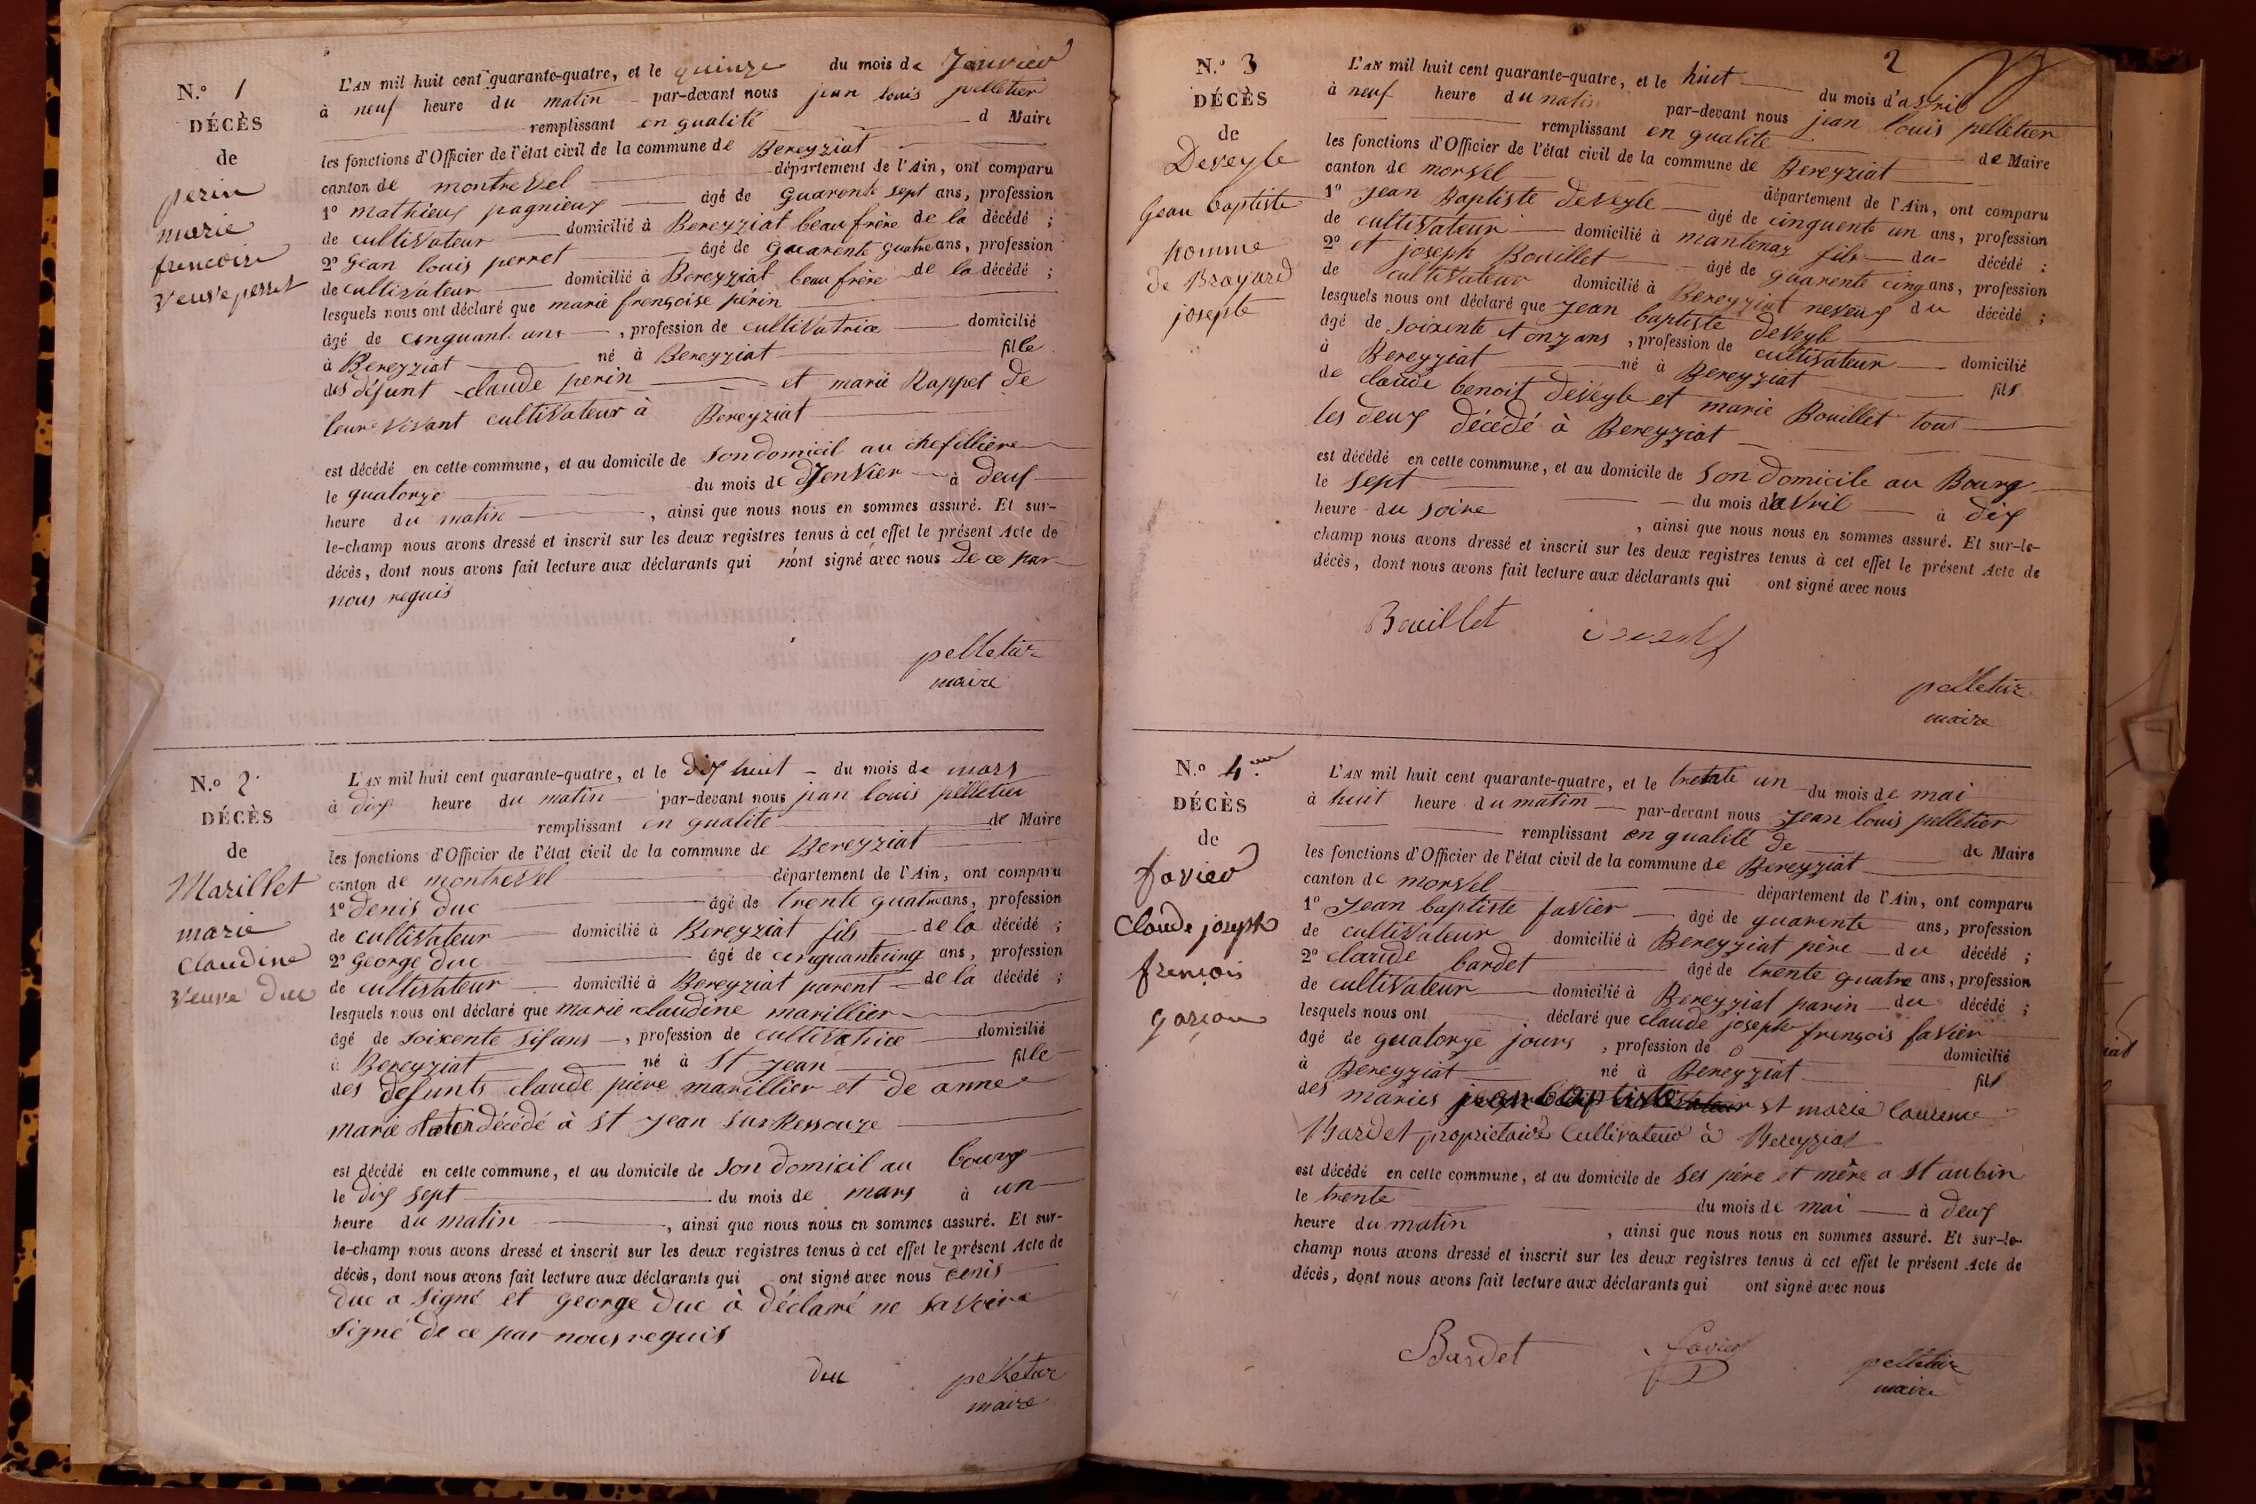 N.° 1
DÉCÈS
de
perin
marie
francoise
veuve perret
L'AN mil huit cent quarante-quatre, et le quinze du mois de Janvier
à neuf heure du matin par-devant nous jean louis pelletier
remplissant en qualité d Maire
les fonctions d'Officier de l'état civil de la commune de Bereyziat
canton de montrevel département de l'Ain, ont comparu
1° mathieux pagnieux âgé de quarente sept ans, profession
de cultivateur domicilié à Bereyziat beaufrère de la décédé ;
2° Gean louis perret âgé de quarente quatre ans, profession
de cultivateur domicilié à Bereyziat beau frère de la décédé ;
lesquels nous ont déclaré que marie françoise périn
âgé de cinquant ans , profession de cultivatrice domicilié
à Bereyziat né à Bereyziat fille
des défunt claude perin et marie Rappet de
leur vivant cultivateur à Bereyziat
est décédé en cette commune, et au domicile de son domicil au chefillière
le quatorze du mois de Jenvier à deux
heure du matin , ainsi que nous nous en sommes assuré. Et sur-
le-champ nous avons dressé et inscrit sur les deux registres tenus à cet effet le présent Acte de
décès, dont nous avons fait lecture aux déclarants qui n'ont signé avec nous de ce par
nous requis
pelletier
maire
N.° 2
DÉCÈS
de
Marillet
marie
claudine
veuve duc
L'AN mil huit cent quarante-quatre, et le dix huit du mois de mars
à dix heure du matin par-devant nous jean louis pelletier
remplissant en qualité de Maire
les fonctions d'Officier de l'état civil de la commune de Bereyziat
canton de montrevel département de l'Ain, ont comparu
1° denis duc âgé de trente quatre ans, profession
de cultivateur domicilié à Bereyziat fils de la décédé ;
2° George duc âgé de cinquante cinq ans, profession
de cultivateur domicilié à Bereyziat parent de la décédé ;
lesquels nous ont déclaré que marie claudine marillier
âgé de soixente six ans , profession de cultivatrice domicilié
à Bereyziat né à St jean fille
des defunts claude piere marillier et de anne
marie décédé à St jean sur Ressouze
est décédé en cette commune, et au domicile de son domicil au bourg
le dix sept du mois de mars à un
heure du matin , ainsi que nous nous en sommes assuré. Et sur-
le-champ nous avons dressé et inscrit sur les deux registres tenus à cet effet le présent Acte de
décès, dont nous avons fait lecture aux déclarants qui ont signé avec nous Denis
duc a signé et george duc à déclaré ne savoire
signé de ce par nous requis
duc pelletier
maire
2
N.° 3
DÉCÈS
de
Deveyle
Gean baptiste
homme
de Broyard
josepte
L'AN mil huit cent quarante-quatre, et le huit du mois d'avril
à neuf heure du matin par-devant nous jean louis pelletier
remplissant en qualité de Maire
les fonctions d'Officier de l'état civil de la commune de Bereyziat
canton de morvel département de l'Ain, ont comparu
1° Jean Baptiste deveyle âgé de cinquente un ans, profession
de cultivateur domicilié à mantenay fils du décédé ;
2° et joseph Bouillet âgé de quarente cinq ans, profession
de cultivateur domicilié à Bereyziat neveux du décédé ;
lesquels nous ont déclaré que Jean baptiste deveyle
âgé de soixente et onz ans , profession de cultivateur domicilié
à Bereyziat né à Bereyziat fils
de claude benoit deveyle et marie Bouillet tous
les deux décédé à Bereyziat
est décédé en cette commune, et au domicile de son domicile au Bourg
le sept du mois d'avril à dix
heure du soire , ainsi que nous nous en sommes assuré. Et sur-le-
champ nous avons dressé et inscrit sur les deux registres tenus à cet effet le présent Acte de
décès, dont nous avons fait lecture aux déclarants qui ont signé avec nous
Bouillet
pelletier
maire
N.° 4
DÉCÈS
de
favier
Claude joseph
françois
garçon
L'AN mil huit cent quarante-quatre, et le trente un du mois de mai
à huit heure du matin par-devant nous Jean louis pelletier
remplissant en qualité de de Maire
les fonctions d'Officier de l'état civil de la commune de Bereyziat
canton de morvel département de l'Ain, ont comparu
1° Jean baptiste favier âgé de quarente ans, profession
de cultivateur domicilié à Bereyziat père du décédé ;
2° claude bardet âgé de trente quatre ans, profession
de cultivateur domicilié à Bereyziat parin du décédé ;
lesquels nous ont déclaré que claude joseph françois favier
âgé de quatorze jours , profession de 0 domicilié
à Bereyziat né à Bereyziat fils
des mariés jean baptiste et marie laurence
Bardet proprietaire Cultivateur à Bereyziat
est décédé en cette commune, et au domicile de ses père et mère a St aubin
le trente du mois de mai à deux
heure du matin , ainsi que nous nous en sommes assuré. Et sur-le-
champ nous avons dressé et inscrit sur les deux registres tenus à cet effet le présent Acte de
décès, dont nous avons fait lecture aux déclarants qui ont signé avec nous
Bardet favier pelletier
maire